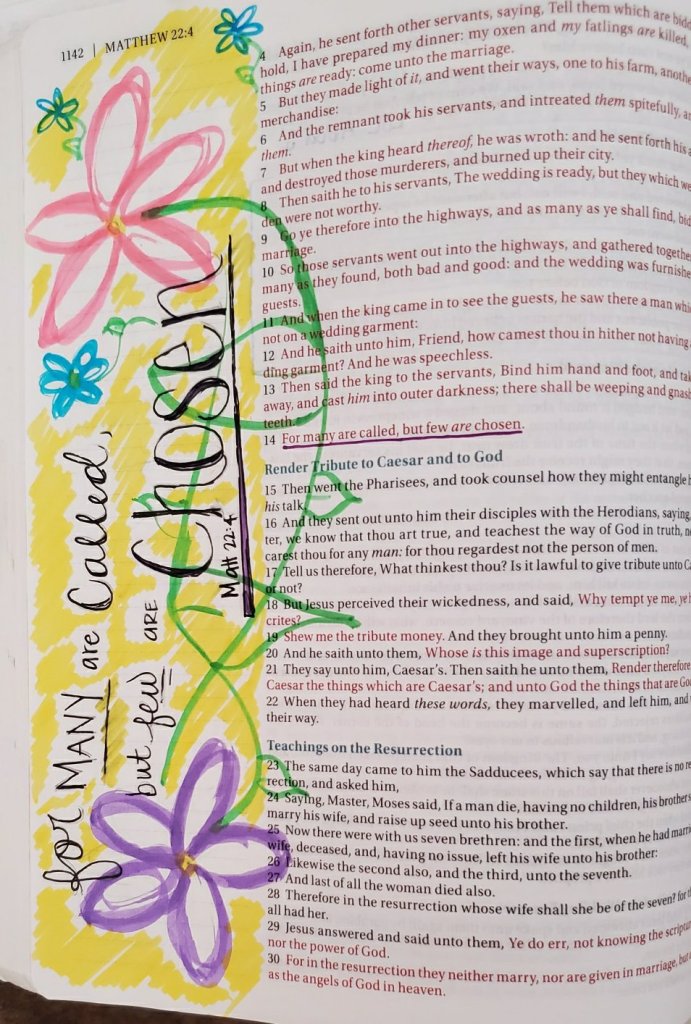 1142 | MATTHEW 22:4
for MANY are Called,
but few are
Chosen
Matt 22:4
4 Again, he sent forth other servants, saying, Tell them which are
hold, I have prepared my dinner: my oxen and my fatlings are killed,
things are ready: come unto the marriage.
5 But they made light of it, and went their ways, one to his farm,
merchandise:
6 And the remnant took his servants, and intreated them spitefully,
them.
7 But when the king heard thereof, he was wroth: and he sent forth his
and destroyed those murderers, and burned up their city.
8 Then saith he to his servants, The wedding is ready, but they which
den were not worthy.
9 Go ye therefore into the highways, and as many as ye shall find,
marriage.
10 So those servants went out into the highways, and gathered
many as they found, both bad and good: and the wedding was
guests.
11 And when the king came in to see the guests, he saw there a man
not on a wedding garment:
12 And he saith unto him, Friend, how camest thou in hither not having
ding garment? And he was speechless.
13 Then said the king to the servants, Bind him hand and foot, and
away, and cast him into outer darkness; there shall be weeping and
teeth.
14 For many are called, but few are chosen.
Render Tribute to Caesar and to God
15 Then went the Pharisees, and took counsel how they might entangle
his talk.
16 And they sent out unto him their disciples with the Herodians, saying,
ter, we know that thou art true, and teachest the way of God in truth,
carest thou for any man: for thou regardest not the person of men.
17 Tell us therefore, What thinkest thou? Is it lawful to give tribute unto
or not?
18 But Jesus perceived their wickedness, and said, Why tempt ye me, ye
crites?
19 Shew me the tribute money. And they brought unto him a penny.
20 And he saith unto them, Whose is this image and superscription?
21 They say unto him, Caesar's. Then saith he unto them, Render therefore
Caesar the things which are Caesar's; and unto God the things that are
22 When they had heard these words, they marvelled, and left him, and
their way.
Teachings on the Resurrection
23 The same day came to him the Sadducees, which say that there is no
rection, and asked him,
24 Saying, Master, Moses said, If a man die, having no children, his brother
marry his wife, and raise up seed unto his brother.
25 Now there were with us seven brethren: and the first, when he had
wife, deceased, and, having no issue, left his wife unto his brother:
26 Likewise the second also, and the third, unto the seventh.
27 And last of all the woman died also.
28 Therefore in the resurrection whose wife shall she be of the seven? for
all had her.
29 Jesus answered and said unto them, Ye do err, not knowing the
nor the power of God.
30 For in the resurrection they neither marry, nor are given in marriage, but
as the angels of God in heaven.